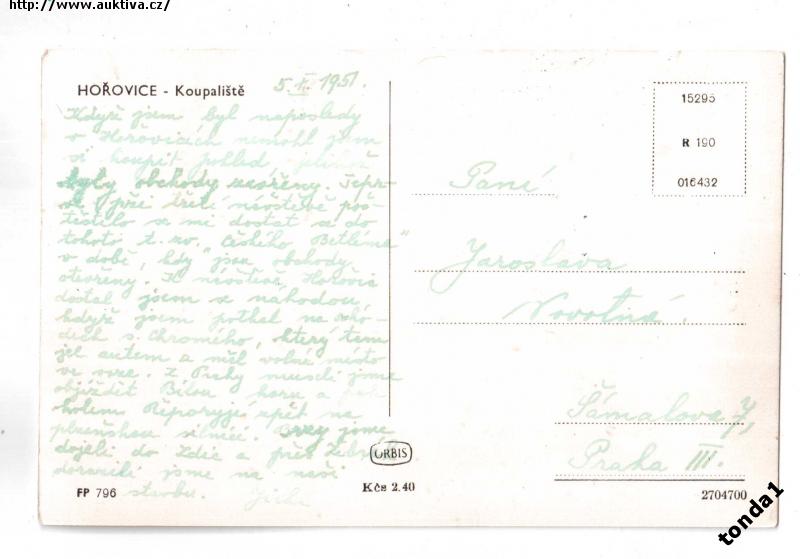 http://www.auktiva.cz/
HOŘOVICE - Koupaliště
5. 1951.
Když jsem byl naposledy
v Hořovicích nemohl jsem
si koupit pohled, jelikož
byly obchody zavřeny. Tepr-
ve při třetí návštěvě poš-
těstilo se mi dostat se do
tohoto t. zv. "Českého Betléma"
v době, kdy jsou obchody
otevřeny. K návštěvě Hořovic
dostal jsem se náhodou,
když jsem potkal na scho-
dech s. Chromého, který tam
jel autem a měl volné místo
ve voze. Z Prahy museli jsme
objíždět Bílou horu a
kolem Řeporyje zpět na
plzeňskou silnici. jsme
dojeli do Zdic a přes
dorazili jsme na naši
stavbu.
FP 796
ORBIS
Kčs 2.40
15295
R 190
016432
Paní
Jaroslava
Novotná.
Šámalova 7,
Praha III.
2704700
tonda1